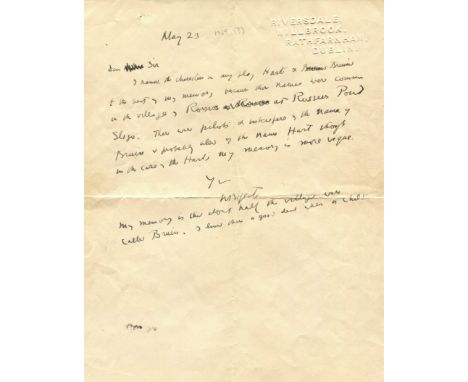 RIVERSDALE,
WILLBROOK,
RATHFARNHAM,
DUBLIN.
May 23
Dear Sir
I named the characters in my play, Hart & Bruin
to the best of my memory, because those names were common
in the village of Rosses at Rosses Point
Sligo. There were pilots & innkeepers of the name of
Bruin & probably also of the name Hart though
in the case of the Harts my memory is more vague.
Yrs
WBYeats
My memory is that about half the village were
called Bruin. I lived there a good deal when a child